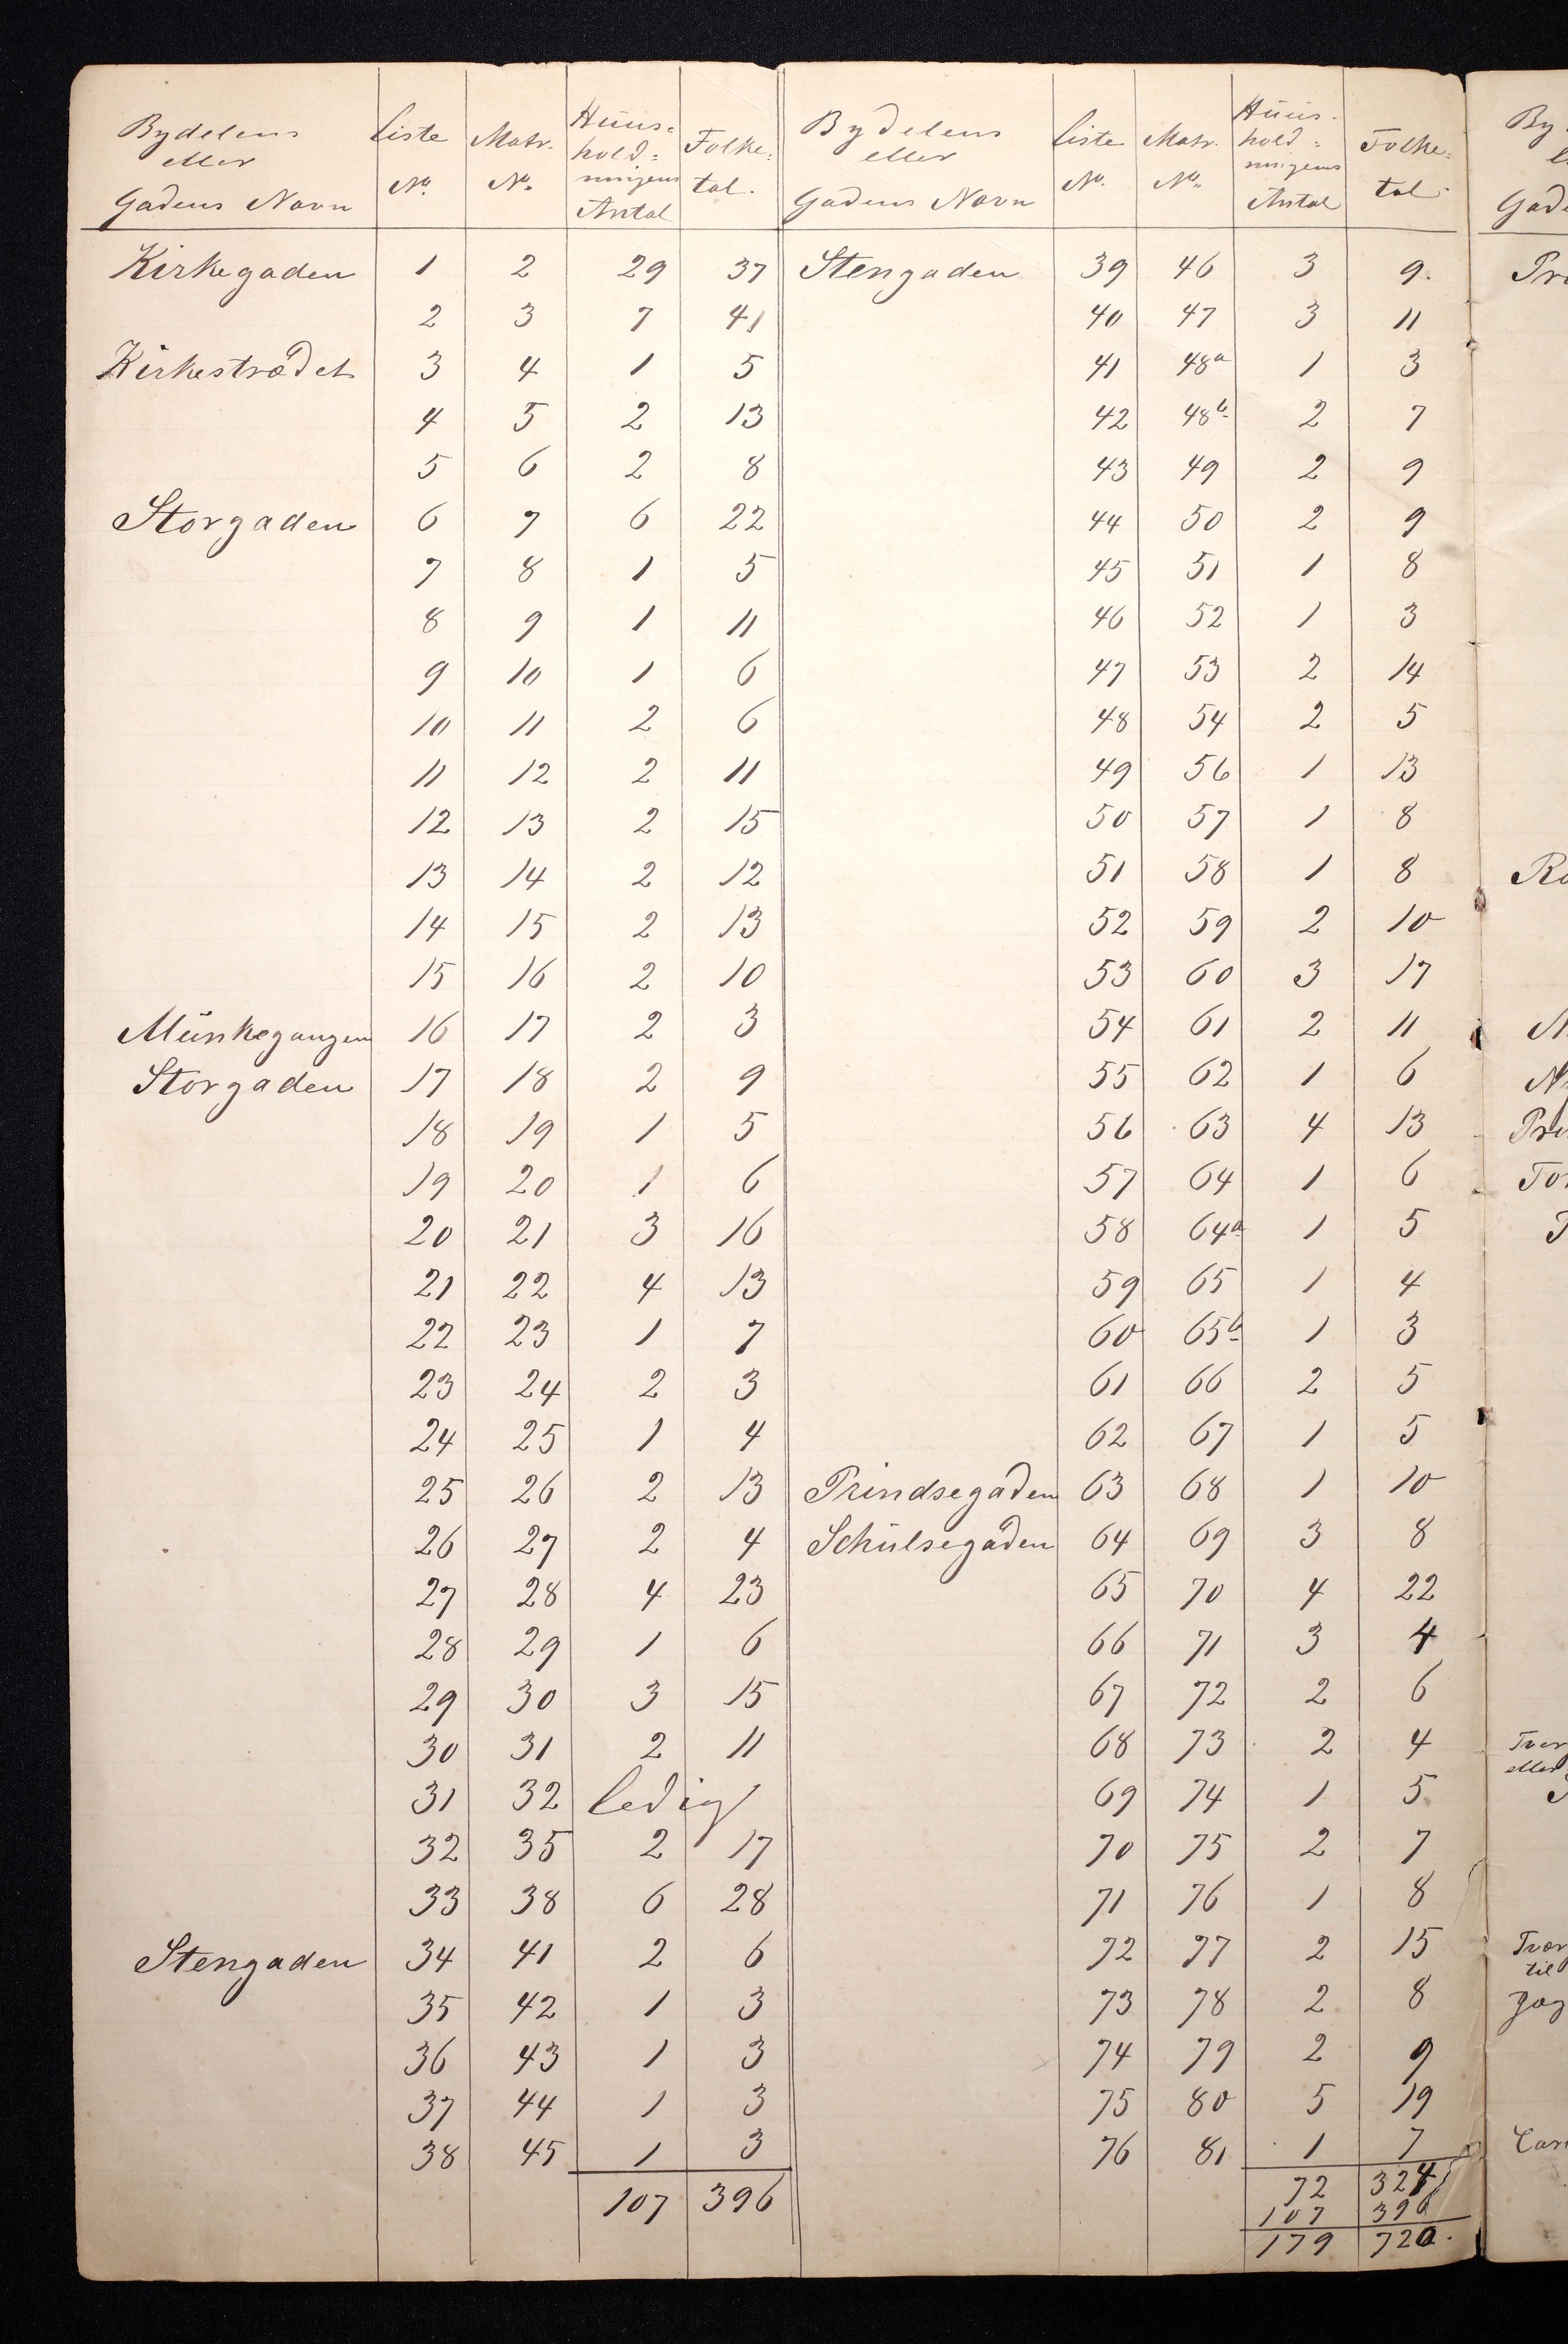 Bydelens eller Gadens Navn | Liste No. | Matr. No. | Huus=hold=ningens Antal | Folke=tal.
Kirkegaden 1 2 29 37
2 3 7 41
Kirkestrædet 3 4 1 5
4 5 2 13
5 6 2 8
Storgaden 6 7 6 22
7 8 1 5
8 9 1 11
9 10 1 6
10 11 2 6
11 12 2 11
12 13 2 15
13 14 2 12
14 15 2 13
15 16 2 10
Munkegangen 16 17 2 3
Storgaden 17 18 2 9
18 19 1 5
19 20 1 6
20 21 3 16
21 22 4 13
22 23 1 7
23 24 2 3
24 25 1 4
25 26 2 13
26 27 2 4
27 28 4 23
28 29 1 6
29 30 3 15
30 31 2 11
31 32 ledig
32 35 2 17
33 38 6 28
Stengaden 34 41 2 6
35 42 1 3
36 43 1 3
37 44 1 3
38 45 1 3
107 396
Bydelens eller Gadens Navn | Liste No. | Matr. No. | Huus-hold=ningens Antal | Folke=tal
Stengaden 39 46 3 9.
40 47 3 11
41 48a 1 3
42 48b 2 7
43 49 2 9
44 50 2 9
45 51 1 8
46 52 1 3
47 53 2 14
48 54 2 5
49 56 1 13
50 57 1 8
51 58 1 8
52 59 2 10
53 60 3 17
54 61 2 11
55 62 1 6
56 63 4 13
57 64 1 6
58 64a 1 5
59 65 1 4
60 65b 1 3
61 66 2 5
62 67 1 5
Prindsegaden 63 68 1 10
Schulsegaden 64 69 3 8
65 70 4 22
66 71 3 4
67 72 2 6
68 73 2 4
69 74 1 5
70 75 2 7
71 76 1 8
72 77 2 15
73 78 2 8
74 79 2 9
75 80 5 19
76 81 1 7
72 324
107 396
179 720.